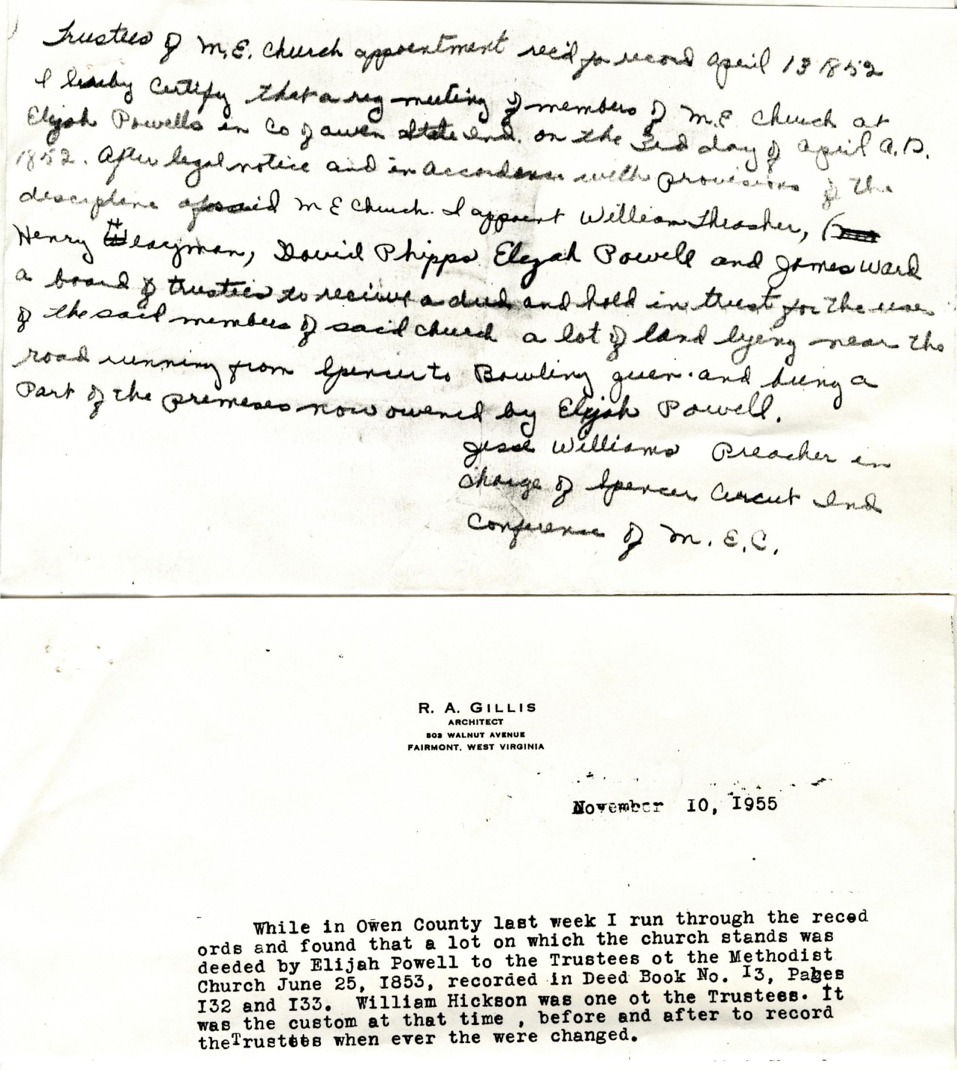 Trustees of M.E. Church appointment rec'd for record April 13 1852
I hereby Certify that a reg meeting of members of M.E Church at
Elijah Powells in Co of Owen State Ind. on the 3rd day of April A.D.
1852. After legal notice and in accordance with provisions of the
discipline of said M E Church. I appoint William Thrasher,
Henry Wayman, David Phipps Elijah Powell and James Ward
a board of trustees to receive a deed and hold in trust for the use
of the said members of said church a lot of land lyeng near the
road running from Spencer to Bowling green. and being a
Part of the premeses now owened by Elijah Powell.
Jesse Williams Preacher in
Charge of Spencer Circuit Ind
Conference of M. E. C.
R. A. GILLIS
ARCHITECT
803 WALNUT AVENUE
FAIRMONT, WEST VIRGINIA
November 10, 1955
While in Owen County last week I run through the reced
ords and found that a lot on which the church stands was
deeded by Elijah Powell to the Trustees ot the Methodist
Church June 25, I853, recorded in Deed Book No. I3, Pages
I32 and I33. William Hickson was one ot the Trustees. It
was the custom at that time , before and after to record
theTrustees when ever the were changed.